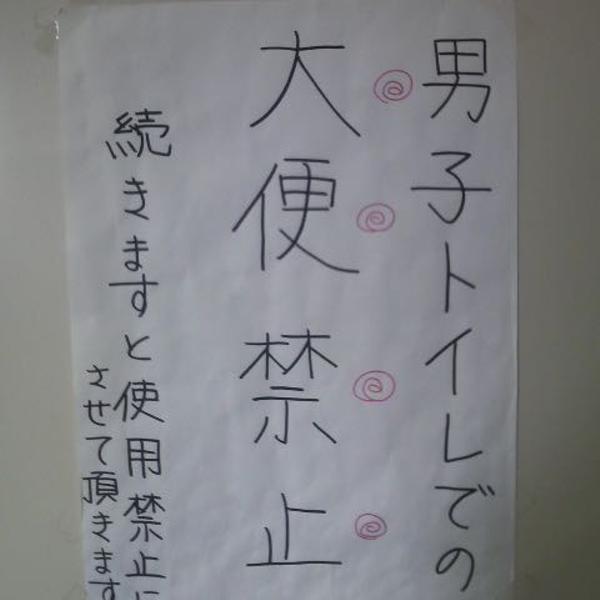 男子トイレでの
大便禁止
続きますと使用禁止に
させて頂きます